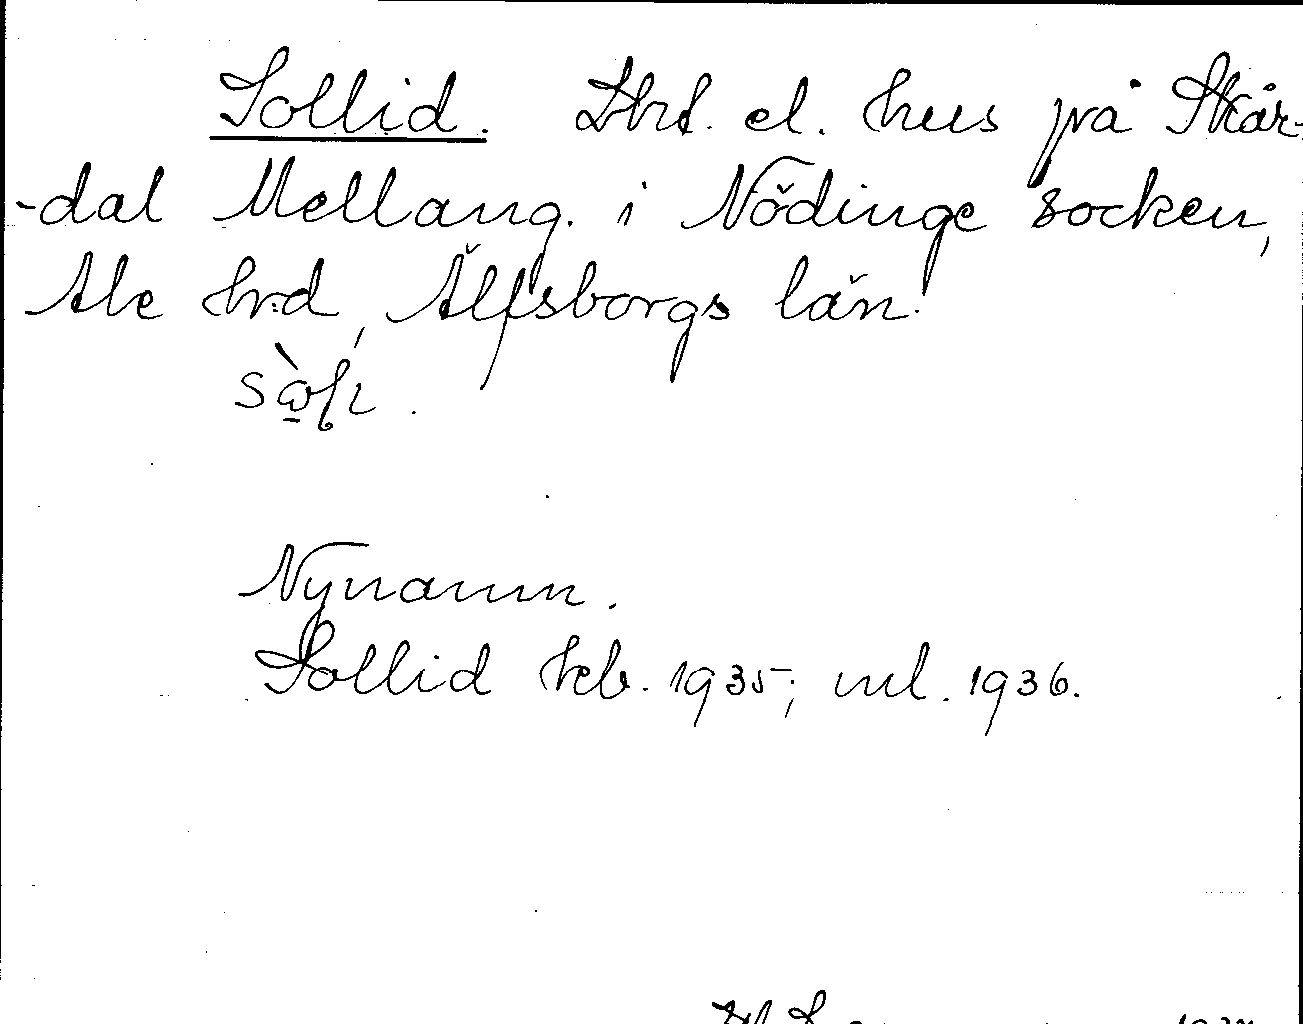 Sollid. Lht. el. hus på Skår-
-dal Mellang. i Nödinge socken,
Ale hrd, Älfsborgs län.
Nynamn.
Sollid heb. 1935; ml. 1936.